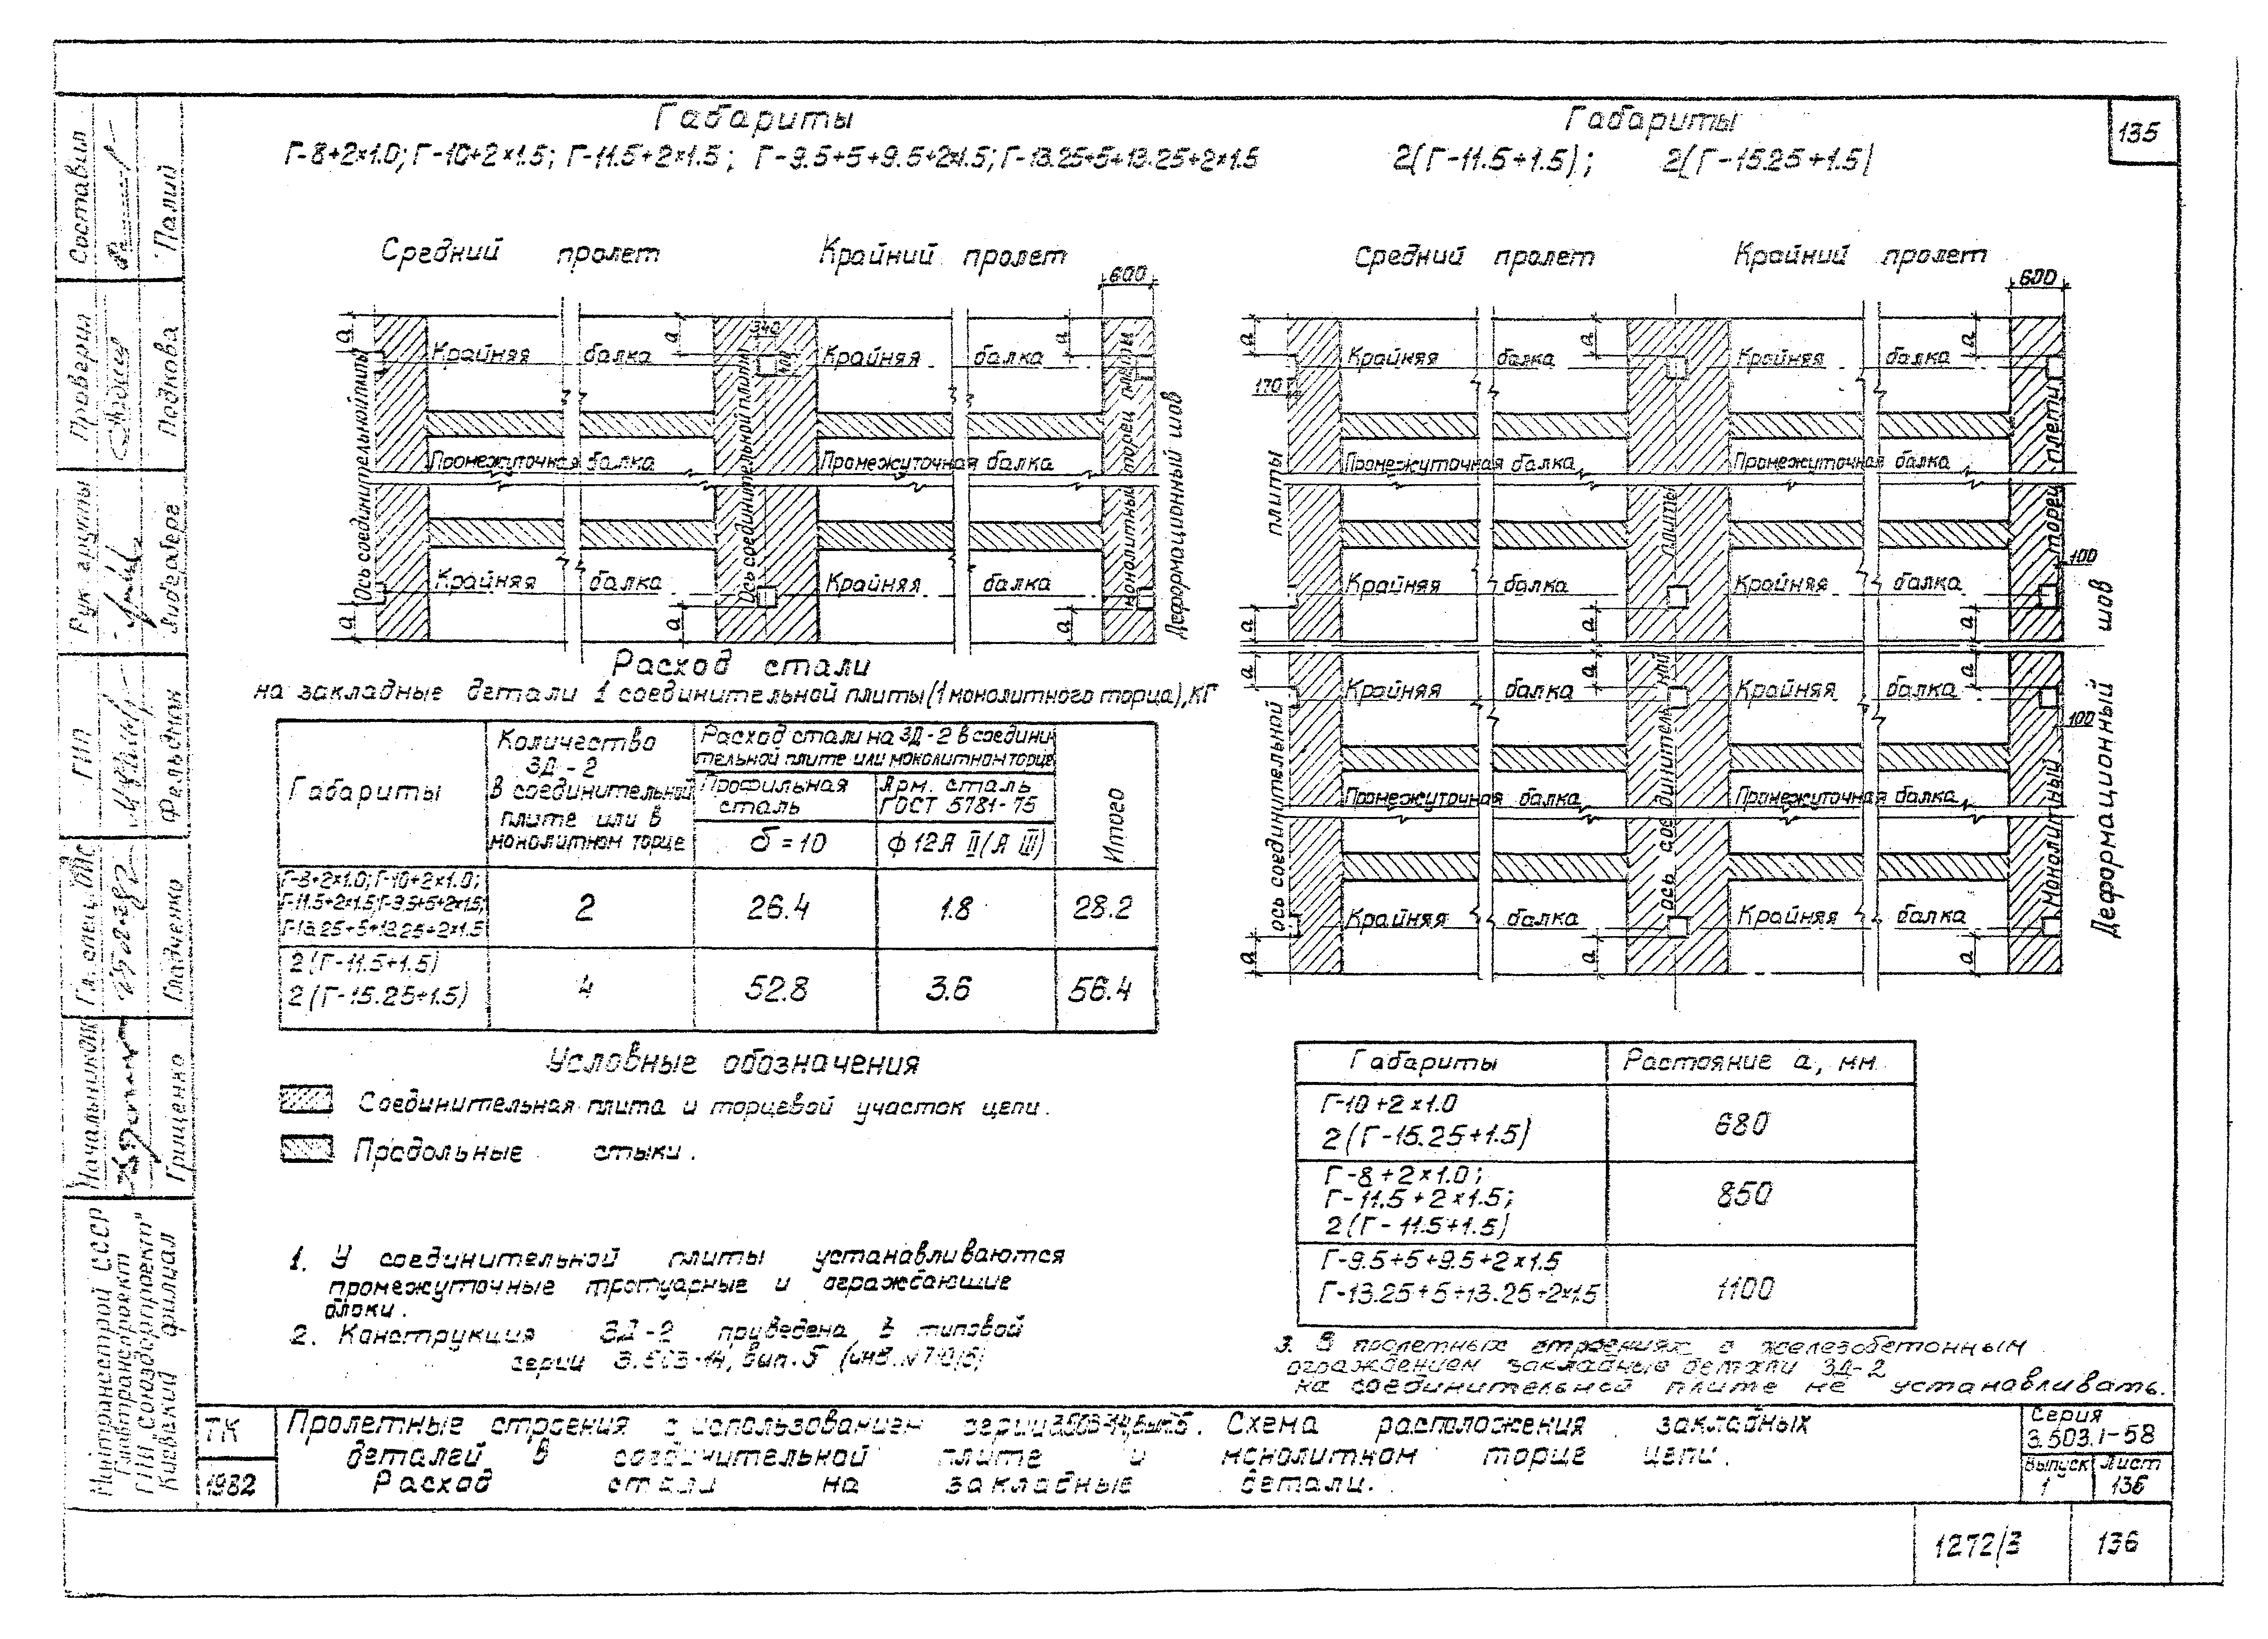 135
Габариты
Г-8+2×1.0; Г-10+2×1.5; Г-11.5+2×1.5; Г-9.5+5+9.5+2×1.5; Г-13.25+5+13.25+2×1.5
Габариты
2(Г-11.5+1.5); 2(Г-15.25+1.5)
Средний пролет
Крайний пролет
600
а
а
а
340
Крайняя балка
Крайняя балка
Промежуточная балка
Промежуточная балка
Крайняя балка
Крайняя балка
а
а
а
Ось соединительной плиты
Ось соединительной плиты
монолитный торец плеты
Деформационный шов
Средний пролет
Крайний пролет
600
а
а
а
170
Крайняя балка
Крайняя балка
Промежуточная балка
Промежуточная балка
100
Крайняя балка
Крайняя балка
а
а
а
а
а
а
Крайняя балка
Крайняя балка
100
Промежуточная балка
Промежуточная балка
Крайняя балка
Крайняя балка
а
а
а
ось соединительной плиты
ось соединительной плиты
Монолитный торец плеты
Деформационный шов
Расход стали
на закладные детали 1 соединительной плиты (1 монолитного торца), кг
Габариты
Количество
ЗД-2
в соединительной
плите или в
монолитном торце
Расход стали на ЗД-2 в соедини
тельной плите или монолитном торце
Профильная
сталь
Арм. сталь
ГОСТ 5781-75
δ=10
ф 12А II (А III)
Итого
Г-8+2×1.0; Г-10+2×1.0;
Г-11.5+2×1.5; Г-9.5+5+2×1.5;
Г-13.25+5+13.25+2×1.5
2
26.4
1.8
28.2
2(Г-11.5+1.5)
2(Г-15.25+1.5)
4
52.8
3.6
56.4
Условные обозначения
Соединительная плита и торцевой участок цепи.
Продольные стыки.
Габариты
Растояние а, мм.
Г-10+2×1.0
2(Г-15.25+1.5)
680
Г-8+2×1.0;
Г-11.5+2×1.5;
2(Г-11.5+1.5)
850
Г-9.5+5+9.5+2×1.5
Г-13.25+5+13.25+2×1.5
1100
1. У соединительной плиты устанавливаются
промежуточные тротуарные и ограждающие
блоки.
2. Конструкция ЗД-2 приведена в типовой
серии 3.503-14, вып.5
3. В пролетных строениях с железобетонным
ограждением закладные детали ЗД-2
на соединительной плите не устанавливать.
ТК
1982
Пролетные строения с использованием серии 3.503-14, вып.5. Схема расположения закладных
деталей в соединительной плите и монолитном торце цепи.
Расход стали на закладные детали.
Серия
3.503.1-58
Выпуск
1
Лист
136
1272/3
136
Составил
Палий
Проверил
Подкова
Рук группы
ГИП
Фельдман
Гл. спец.
Гладченко
Грищенко
Минтрансстрой СССР
Главтранспроект
ГПИ Союздорпроект"
Киевский филиал